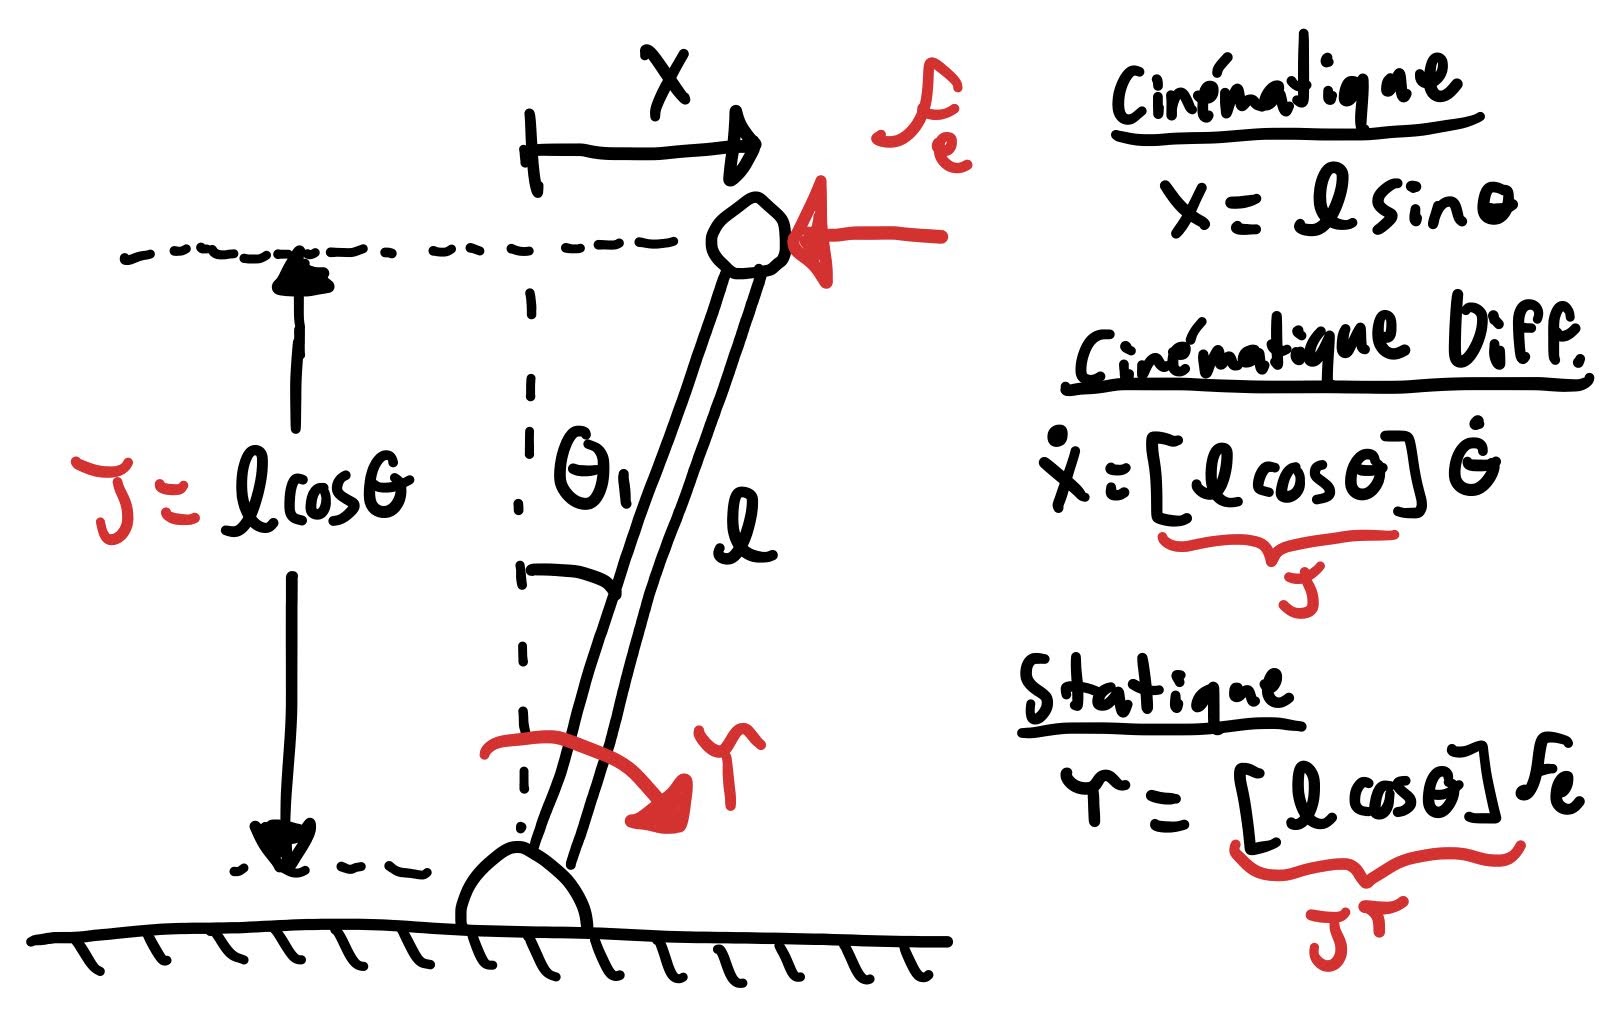 x
Fe
J = l cosθ
θ₁
l
τ
Cinématique
x = l sinθ
Cinématique Diff.
ẋ = [l cosθ] θ̇
J
Statique
τ = [l cosθ] Fe
Jᵀ